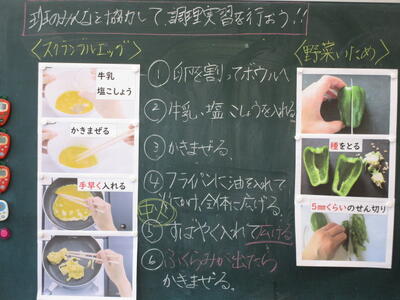 班のみんなと協力して、調理実習を行おう!!
<スクランブルエッグ>
牛乳
塩こしょう
かきまぜる
手早く入れる
① 卵を割ってボウルへ
② 牛乳、塩こしょうを入れる
③ かきまぜる。
④ フライパンに油を入れて
火にかけ、全体に広げる。
中火
⑤ すばやく入れて広げる
⑥ ふくらみが出たら
かきまぜる。
<野菜いため>
種をとる
5㎜くらいのせん切り